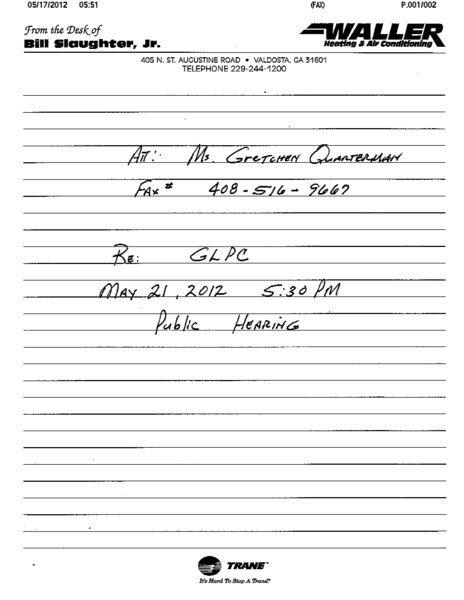 05/17/2012 05:51 (FAX) P.001/002
From the Desk of
Bill Slaughter, Jr.
WALLER
Heating & Air Conditioning
405 N. ST. AUGUSTINE ROAD • VALDOSTA, GA 31601
TELEPHONE 229-244-1200
ATT: Ms. GretcHEN QUARTERMAN
FAX # 408-516-9667
RE: GLPC
MAY 21, 2012 5:30 PM
Public HEARING
TRANE™
It's Hard To Stop A Trane.®